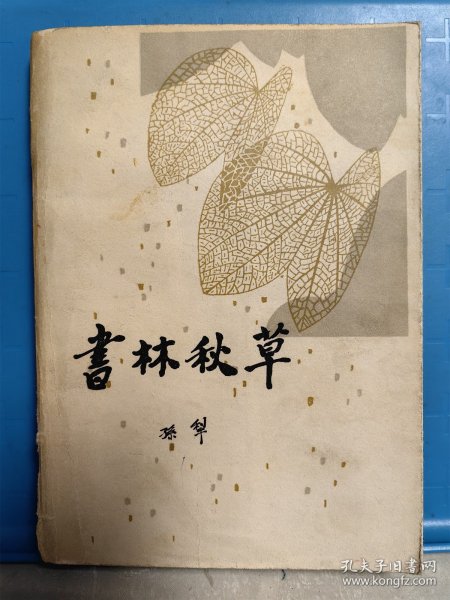 書林秋草
孫犁
孔夫子旧书网
www.kongfz.com